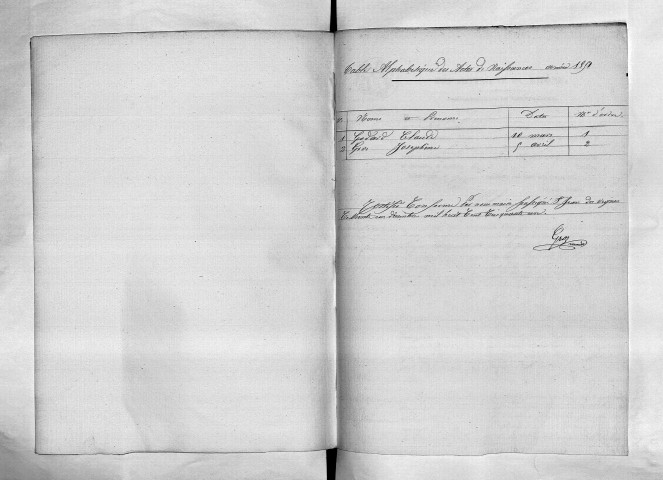 Table Alphabétique des Actes de Naissances année 1851
Noms et Prénoms Date Nos d'ordre
1 Godard Claude 10 mars 1
2 Gros Joseph 5 avril 2
Certifié Conforme Par nous maire St Jean de
mil huit Cent Cinquante un
Gros